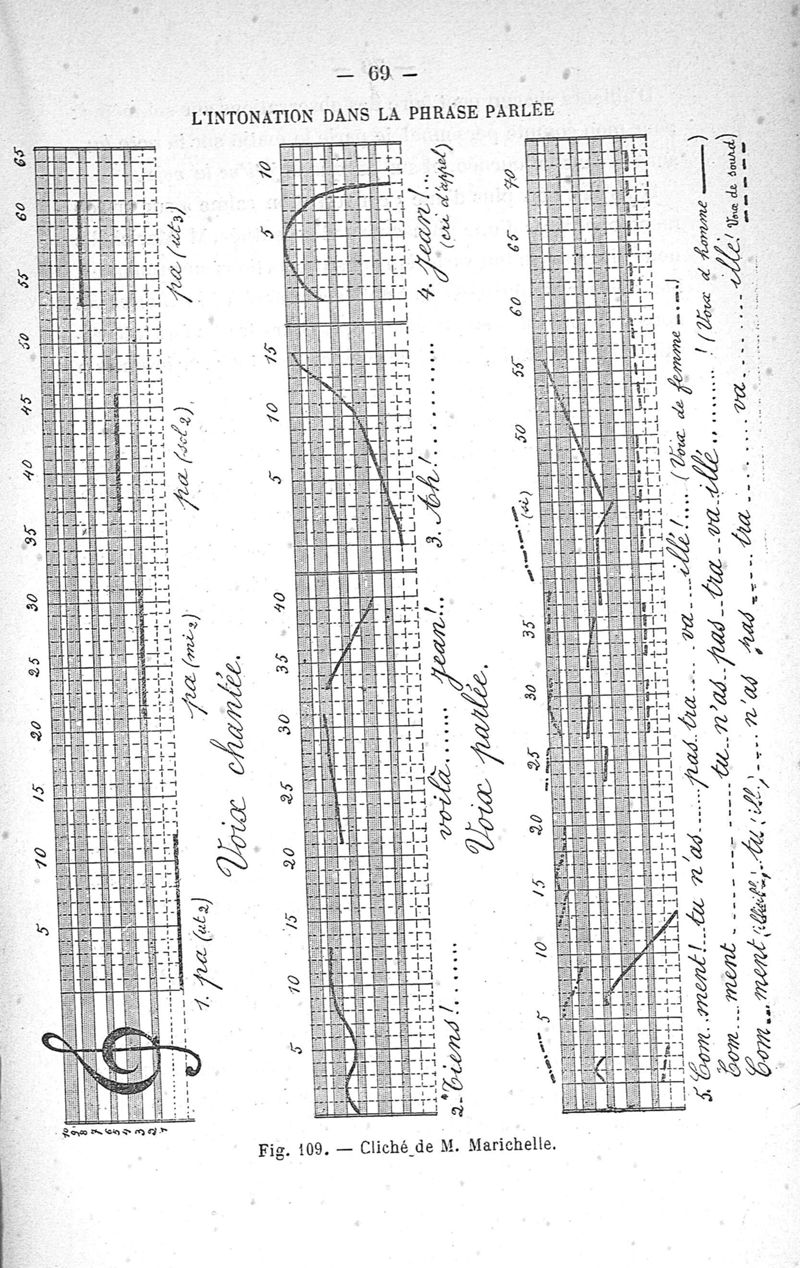 — 69 —
L'INTONATION DANS LA PHRASE PARLÉE
5 10 15 20 25 30 35 40 45 50 55 60 65
10 9 8 7 6 5 4 3 2 1
1. pa (ut 2) pa (mi 2) pa (sol 2) pa (ut 3)
Voix chantée.
5 10 15 20 25 30 35 40 5 10 15 5 10
2. "Tiens!...... voilà...... Jean!... 3. Ah!.......... 4. Jean!... (cri d'appel)
Voix parlée.
5 10 15 20 25 30 35 (si) 50 55 60 65 70
5. Com...ment!...tu n'as......pas...tra.....va...illé!..... (Voix de femme —.—.)
Com...ment - - - - - - - tu...n'as...pas...tra-va-illé..........! (Voix d'homme ———)
Com...ment (illisible)...tu (ill.)...n'as pas.....tra........va........illé! Voix de sourd) - - - -
Fig. 109. — Cliché de M. Marichelle.